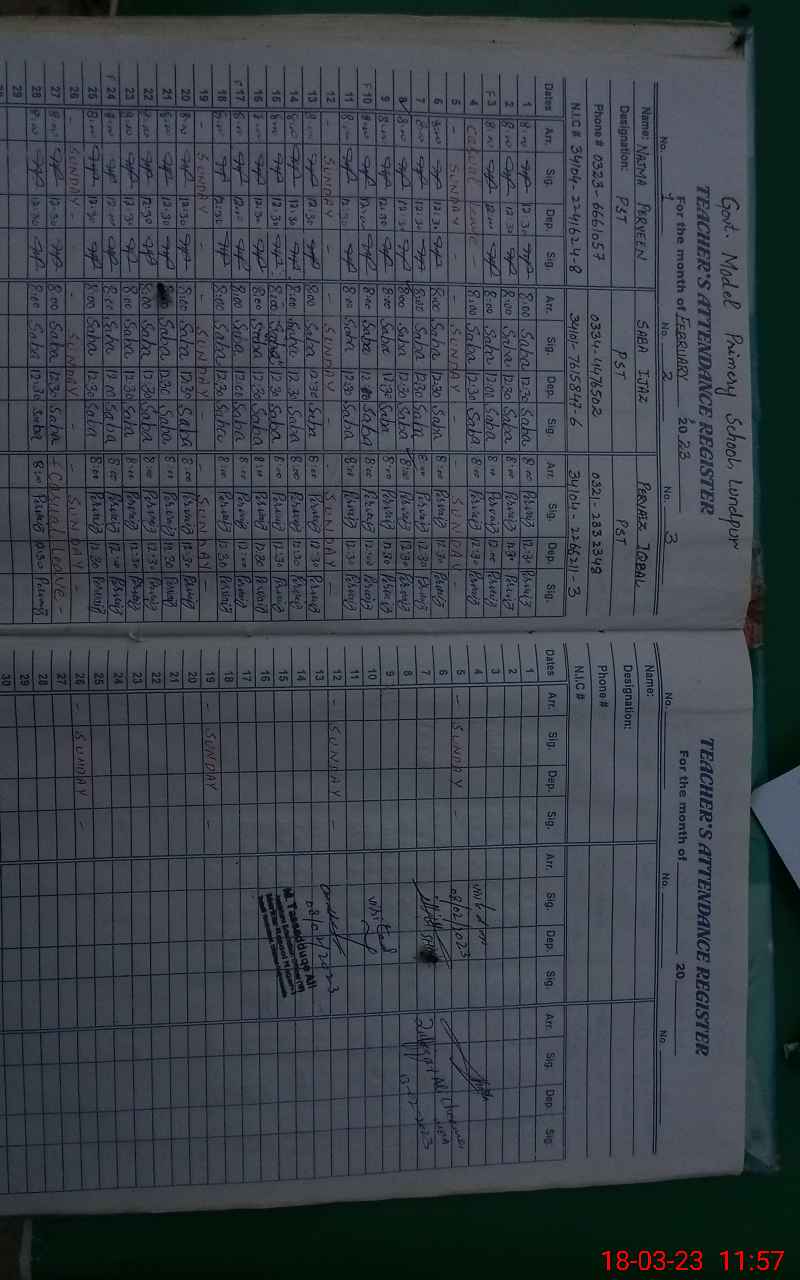 Govt. Model Primary School, Lundpur
TEACHER'S ATTENDANCE REGISTER
For the month of FEBRUARY 2023
No. 1 No. 2 No. 3
Name: NAJMA PERVEEN SABA IJAZ PERVAIZ IQBAL
Designation: PST PST PST
Phone # 0323-6661057 0334-4476502 0321-2832349
N.I.C # 34104-2241624-8 34101-7615847-6 34104-2266211-3
Dates Arr. Sig. Dep. Sig. Arr. Sig. Dep. Sig. Arr. Sig. Dep. Sig.
1 8:00 12:30 8:00 Saba 12:30 Saba 8:00 Pervaiz 12:30 Pervaiz
2 8:00 12:30 8:00 Saba 12:30 Saba 8:00 Pervaiz 12:30 Pervaiz
F 3 8:00 12:00 8:00 Saba 12:00 Saba 8:00 Pervaiz 12:00 Pervaiz
4 Casual Leave - 8:00 Saba 12:30 Saba 8:00 Pervaiz 12:30 Pervaiz
5 - SUNDAY - - SUNDAY - - SUNDAY -
6 8:00 12:30 8:00 Saba 12:30 Saba 8:00 Pervaiz 12:30 Pervaiz
7 8:00 12:30 8:00 Saba 12:30 Saba 8:00 Pervaiz 12:30 Pervaiz
8 8:00 12:30 8:00 Saba 12:30 Saba 8:00 Pervaiz 12:30 Pervaiz
9 8:00 12:30 8:00 Saba 12:30 Saba 8:00 Pervaiz 12:30 Pervaiz
F 10 8:00 12:00 8:00 Saba 12:00 Saba 8:00 Pervaiz 12:00 Pervaiz
11 8:00 12:30 8:00 Saba 12:30 Saba 8:00 Pervaiz 12:30 Pervaiz
12 - SUNDAY - - SUNDAY - - SUNDAY -
13 8:00 12:30 8:00 Saba 12:30 Saba 8:00 Pervaiz 12:30 Pervaiz
14 8:00 12:30 8:00 Saba 12:30 Saba 8:00 Pervaiz 12:30 Pervaiz
15 8:00 12:30 8:00 Saba 12:30 Saba 8:00 Pervaiz 12:30 Pervaiz
16 8:00 12:30 8:00 Saba 12:30 Saba 8:00 Pervaiz 12:30 Pervaiz
F 17 8:00 12:00 8:00 Saba 12:00 Saba 8:00 Pervaiz 12:00 Pervaiz
18 8:00 12:30 8:00 Saba 12:30 Saba 8:00 Pervaiz 12:30 Pervaiz
19 - SUNDAY - - SUNDAY - - SUNDAY -
20 8:00 12:30 8:00 Saba 12:30 Saba 8:00 Pervaiz 12:30 Pervaiz
21 8:00 12:30 Saba 12:30 Saba 8:00 Pervaiz 12:30 Pervaiz
22 8:00 12:30 8:00 Saba 12:30 Saba 8:00 Pervaiz 12:30 Pervaiz
23 8:00 12:30 8:00 Saba 12:30 Saba 8:00 Pervaiz 12:30 Pervaiz
F 24 8:00 12:00 8:00 Saba 12:00 Saba 8:00 Pervaiz 12:00 Pervaiz
25 8:00 12:30 8:00 Saba 12:30 Saba 8:00 Pervaiz 12:30 Pervaiz
26 - SUNDAY - - SUNDAY - - SUNDAY -
27 8:00 12:30 8:00 Saba 12:30 Saba Casual Leave -
28 8:00 12:30 8:00 Saba 12:30 Saba 8:00 Pervaiz 12:30 Pervaiz
29
TEACHER'S ATTENDANCE REGISTER
For the month of 20
No. No. No.
Name:
Designation:
Phone #
N.I.C #
Dates Arr. Sig. Dep. Sig. Arr. Sig. Dep. Sig. Arr. Sig. Dep. Sig.
1
2
3
4
5 - SUNDAY - 08/02/2023
6
7
8
9
10 visited
11
12 - SUNDAY -
13 08/02/2023
14
15 M. Tassadduqe Ali
16
17
18
19 - SUNDAY -
20
21
22
23
24
25
26 - SUNDAY -
27
28
29
30
18-03-23 11:57